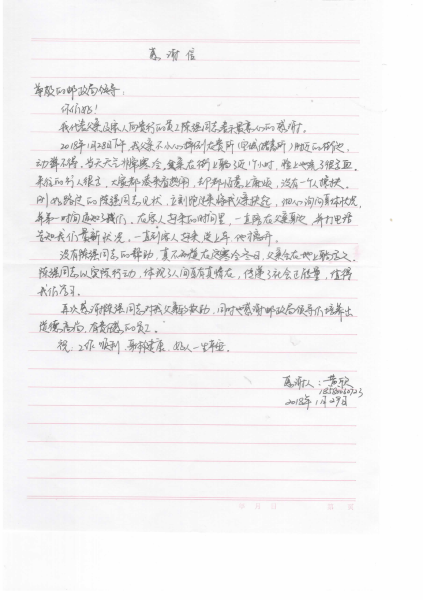 感谢信
尊敬的邮政局领导:
你们好!
我代表父亲及家人向贵行的员工陈强同志表示最衷心的感谢。
2018年1月28日下午,我父亲不小心摔倒在贵所
动弹不得,当天天气非常寒冷,父亲在街上躺了近1个小时,脸上也流了很多血。
来往的行人很多,大家都凑来看热闹,
刚好路过的陈强同志见状,立刻跑过来将我父亲扶起,细心询问具体状况,
并第一时间通知了我们,在家人赶来的时间里,一直陪在父亲身边,并打电话
告知我们最新状况,一直到家人赶来送上车他才离开。
没有陈强同志的帮助,真不知道在这寒冷冬日,父亲会在地上躺多久。
陈强同志以实际行动,体现了人间自有真情在,传递了社会正能量,值得
我们学习。
再次感谢陈强同志对我父亲的救助,同时也感谢邮政局领导们培养出
道德高尚,有责任感的员工。
祝:工作顺利,身体健康,好人一生平安。
感谢人:黄欣
2018年1月29日
年 月 日 第 页